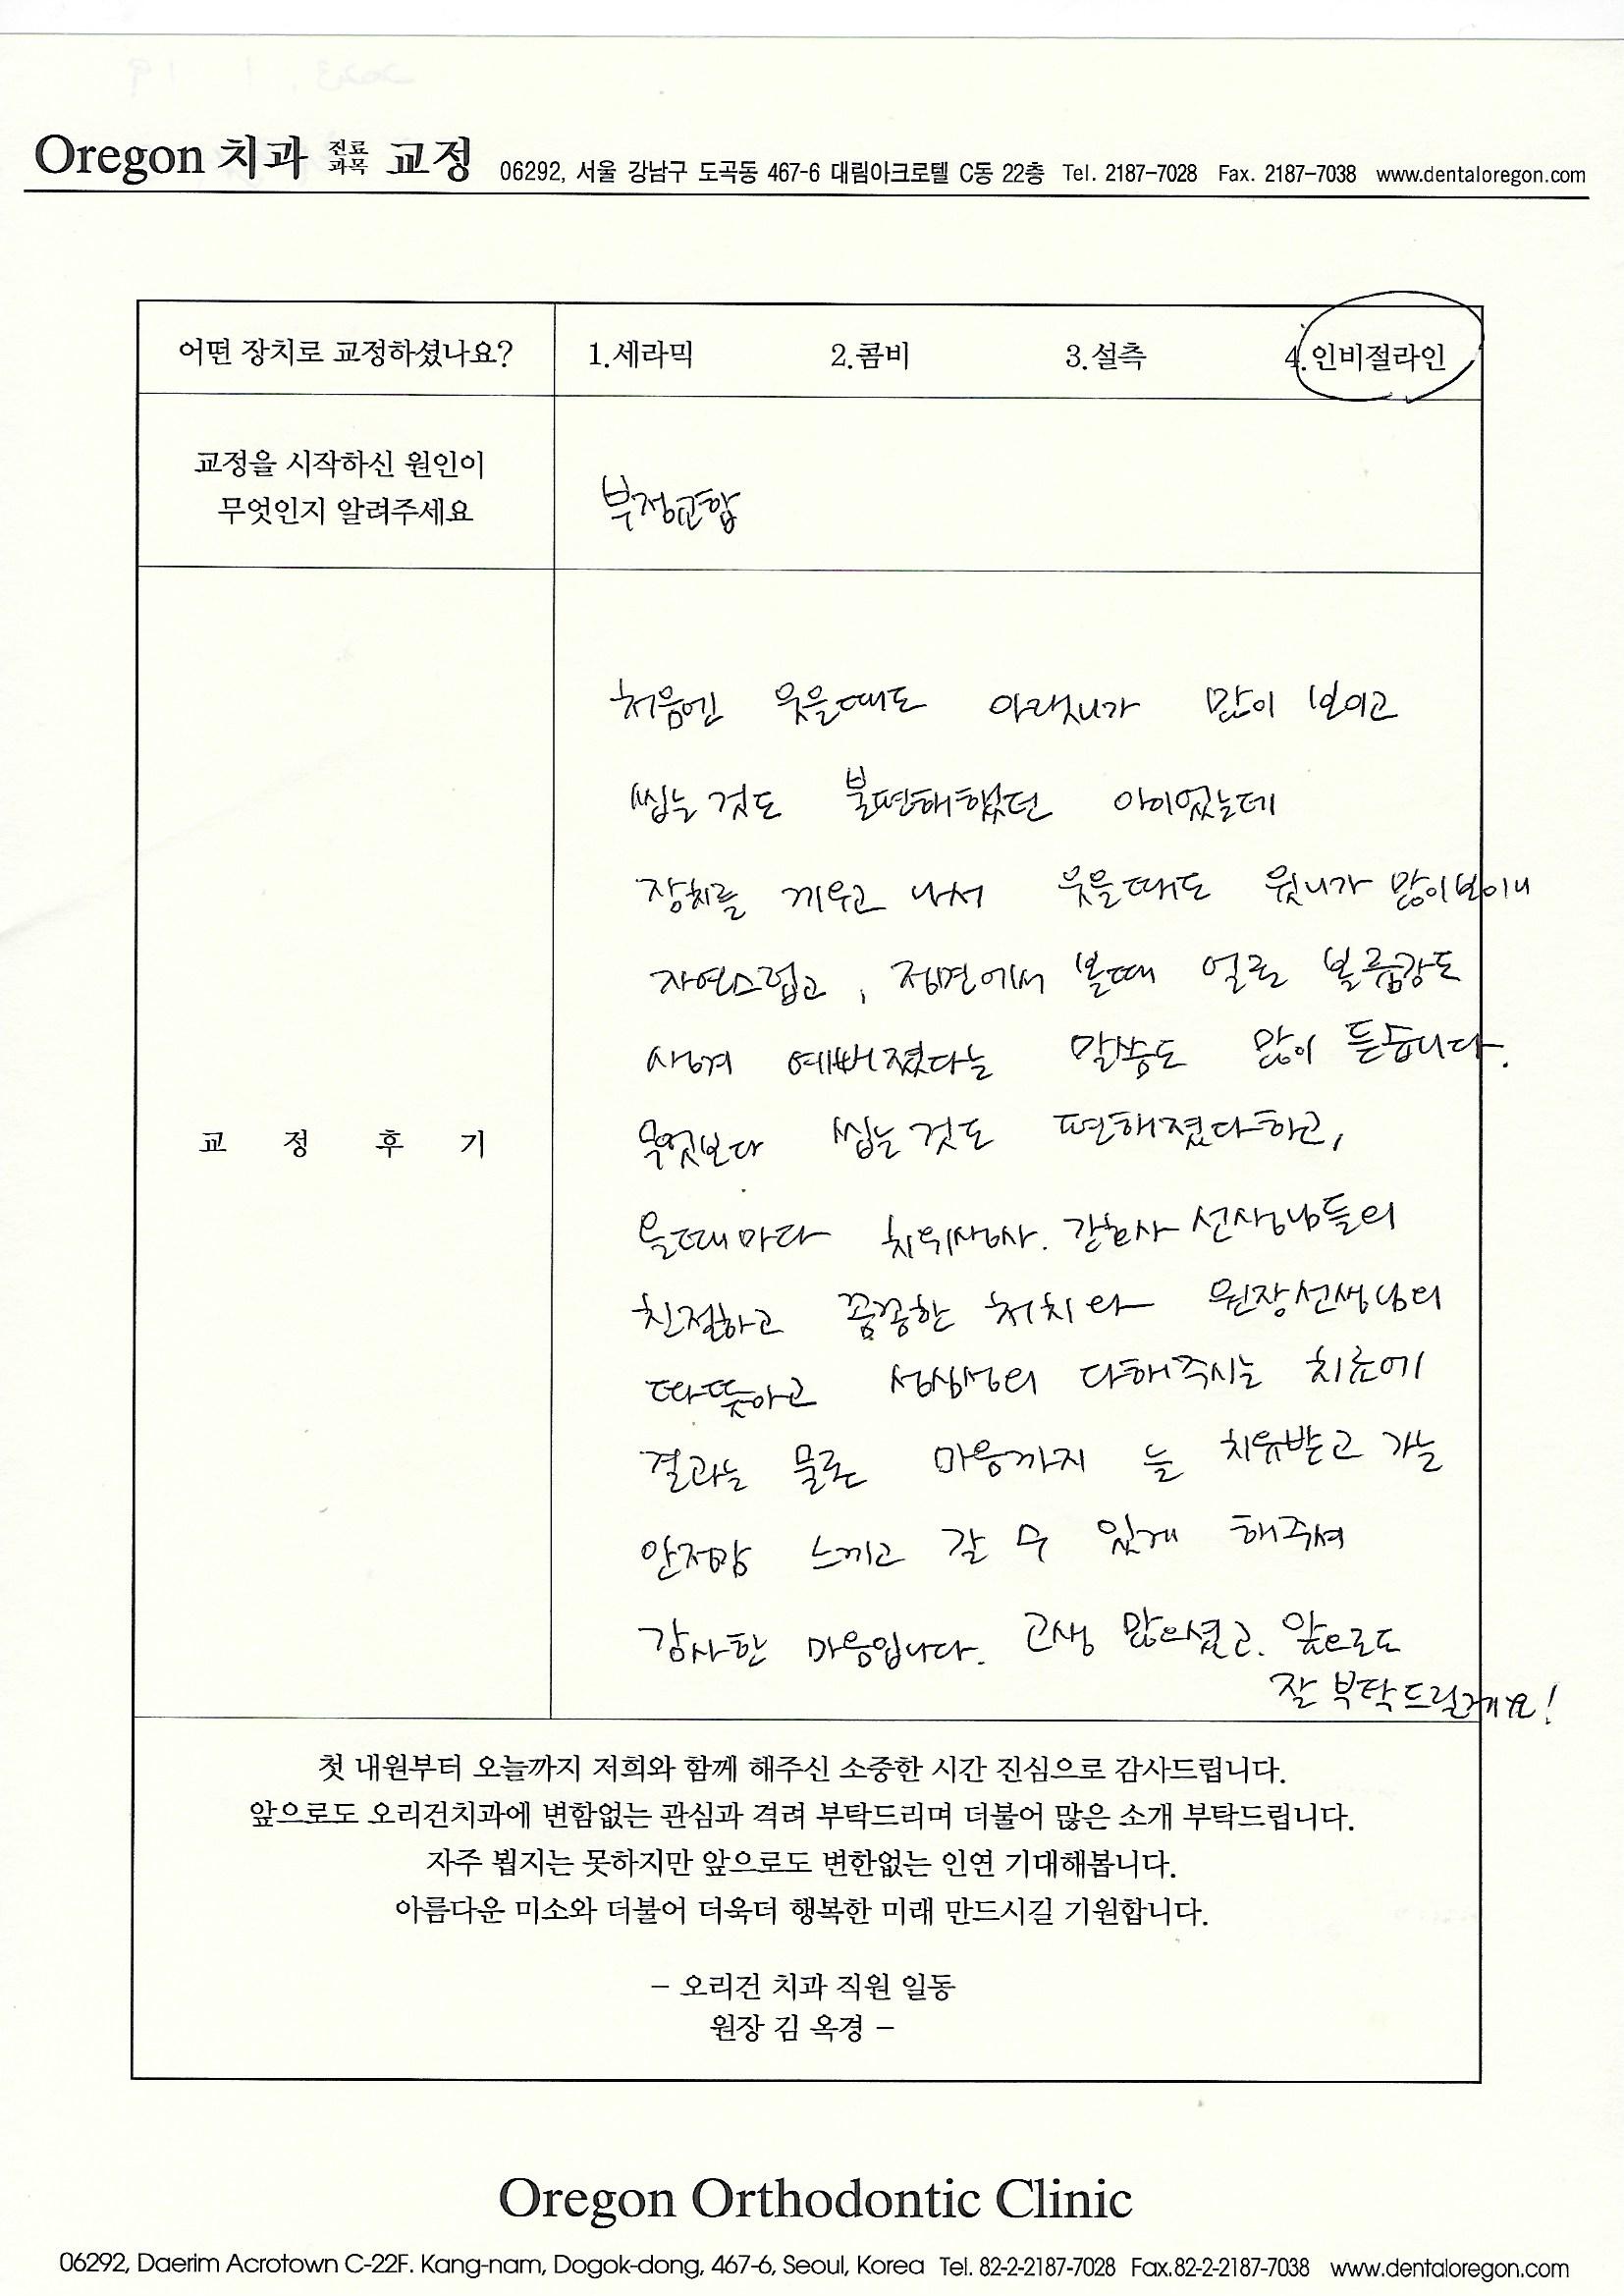 Oregon 치과 진료과목 교정 06292, 서울 강남구 도곡동 467-6 대림아크로텔 C동 22층 Tel. 2187-7028 Fax. 2187-7038 www.dentaloregon.com
어떤 장치로 교정하셨나요? 1.세라믹 2.콤비 3.설측 4.인비절라인
교정을 시작하신 원인이
무엇인지 알려주세요
부정교합
교 정 후 기
처음엔 웃을때도 아랫니가 많이 보이고
씹는 것도 불편해했던 아이였는데
장치를 끼우고 나서 웃을때도 윗니가 많이보이니
자연스럽고, 정면에서 볼때 얼굴 볼륨감도
생겨 예뻐졌다는 말씀도 많이 듣습니다.
무엇보다 씹는 것도 편해졌다하고,
올때마다 치위생사. 간호사 선생님들의
친절하고 꼼꼼한 처치와 원장선생님의
따뜻하고 성심성의 다해주시는 치료에
결과는 물론 마음까지 늘 치유받고 가는
안정감 느끼고 갈 수 있게 해주셔
감사한 마음입니다. 고생 많으셨고. 앞으로도
잘 부탁드릴게요!
첫 내원부터 오늘까지 저희와 함께 해주신 소중한 시간 진심으로 감사드립니다.
앞으로도 오리건치과에 변함없는 관심과 격려 부탁드리며 더불어 많은 소개 부탁드립니다.
자주 뵙지는 못하지만 앞으로도 변한없는 인연 기대해봅니다.
아름다운 미소와 더불어 더욱더 행복한 미래 만드시길 기원합니다.
– 오리건 치과 직원 일동
원장 김 옥경 –
Oregon Orthodontic Clinic
06292, Daerim Acrotown C-22F. Kang-nam, Dogok-dong, 467-6, Seoul, Korea Tel. 82-2-2187-7028 Fax.82-2-2187-7038 www.dentaloregon.com